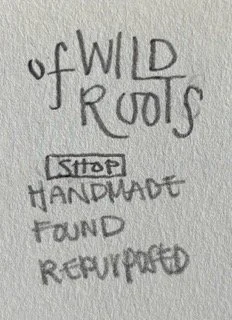 of WILD
ROOTS
SHOP
HANDMADE
FOUND
REPURPOSED